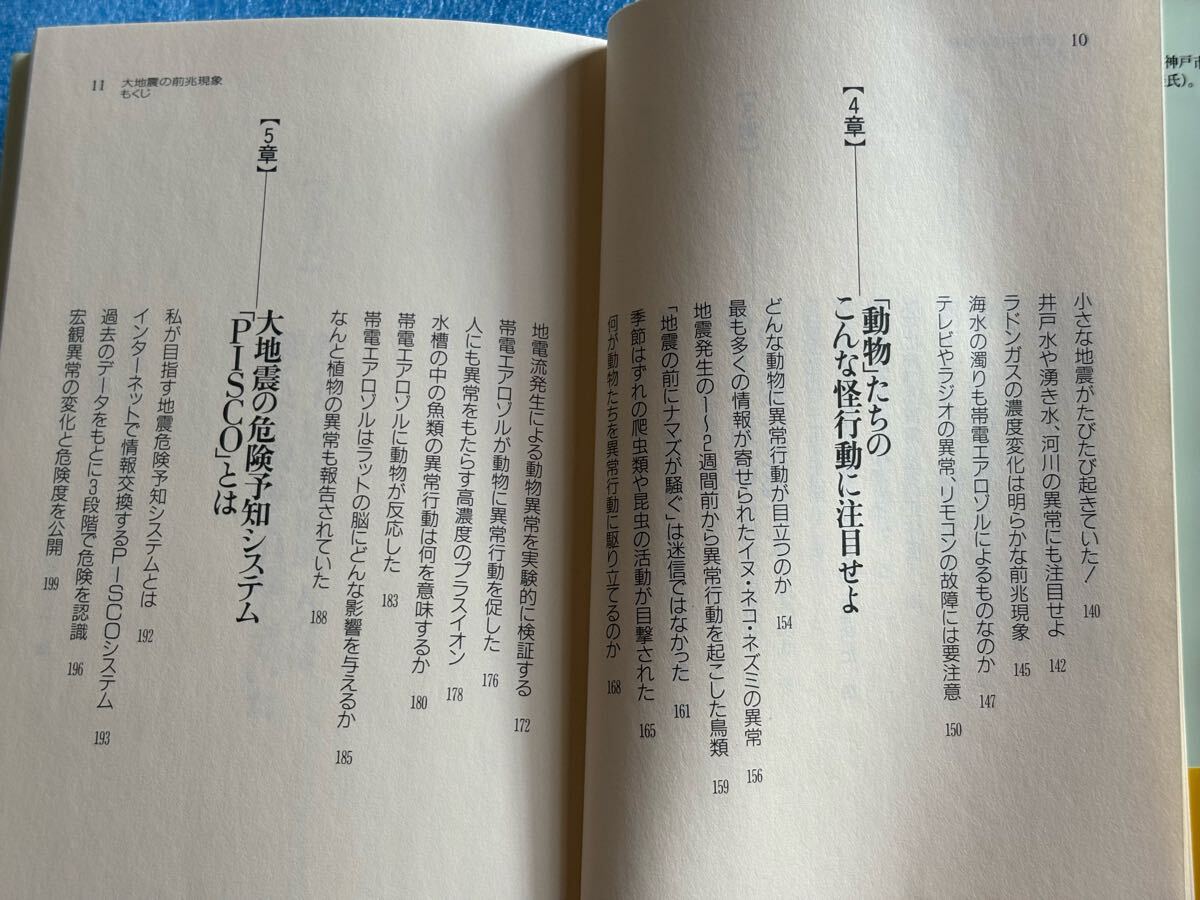 10
小さな地震がたびたび起きていた! 140
井戸水や湧き水、河川の異常にも注目せよ 142
ラドンガスの濃度変化は明らかな前兆現象 145
海水の濁りも帯電エアロゾルによるものなのか 147
テレビやラジオの異常、リモコンの故障には要注意 150
【4章】
「動物」たちの
こんな怪行動に注目せよ
どんな動物に異常行動が目立つのか 154
最も多くの情報が寄せられたイヌ・ネコ・ネズミの異常 156
地震発生の1〜2週間前から異常行動を起こした鳥類 159
「地震の前にナマズが騒ぐ」は迷信ではなかった 161
季節はずれの爬虫類や昆虫の活動が目撃された 165
何が動物たちを異常行動に駆り立てるのか 168
11 大地震の前兆現象
もくじ
地電流発生による動物異常を実験的に検証する 172
帯電エアロゾルが動物に異常行動を促した 176
人にも異常をもたらす高濃度のプラスイオン 178
水槽の中の魚類の異常行動は何を意味するか 180
帯電エアロゾルに動物が反応した 183
帯電エアロゾルはラットの脳にどんな影響を与えるか 185
なんと植物の異常も報告されていた 188
【5章】
大地震の危険予知システム
「PISCO」とは
私が目指す地震危険予知システムとは 192
インターネットで情報交換するPISCOシステム 193
過去のデータをもとに3段階で危険を認識 196
宏観異常の変化と危険度を公開 199
神戸市
氏)。